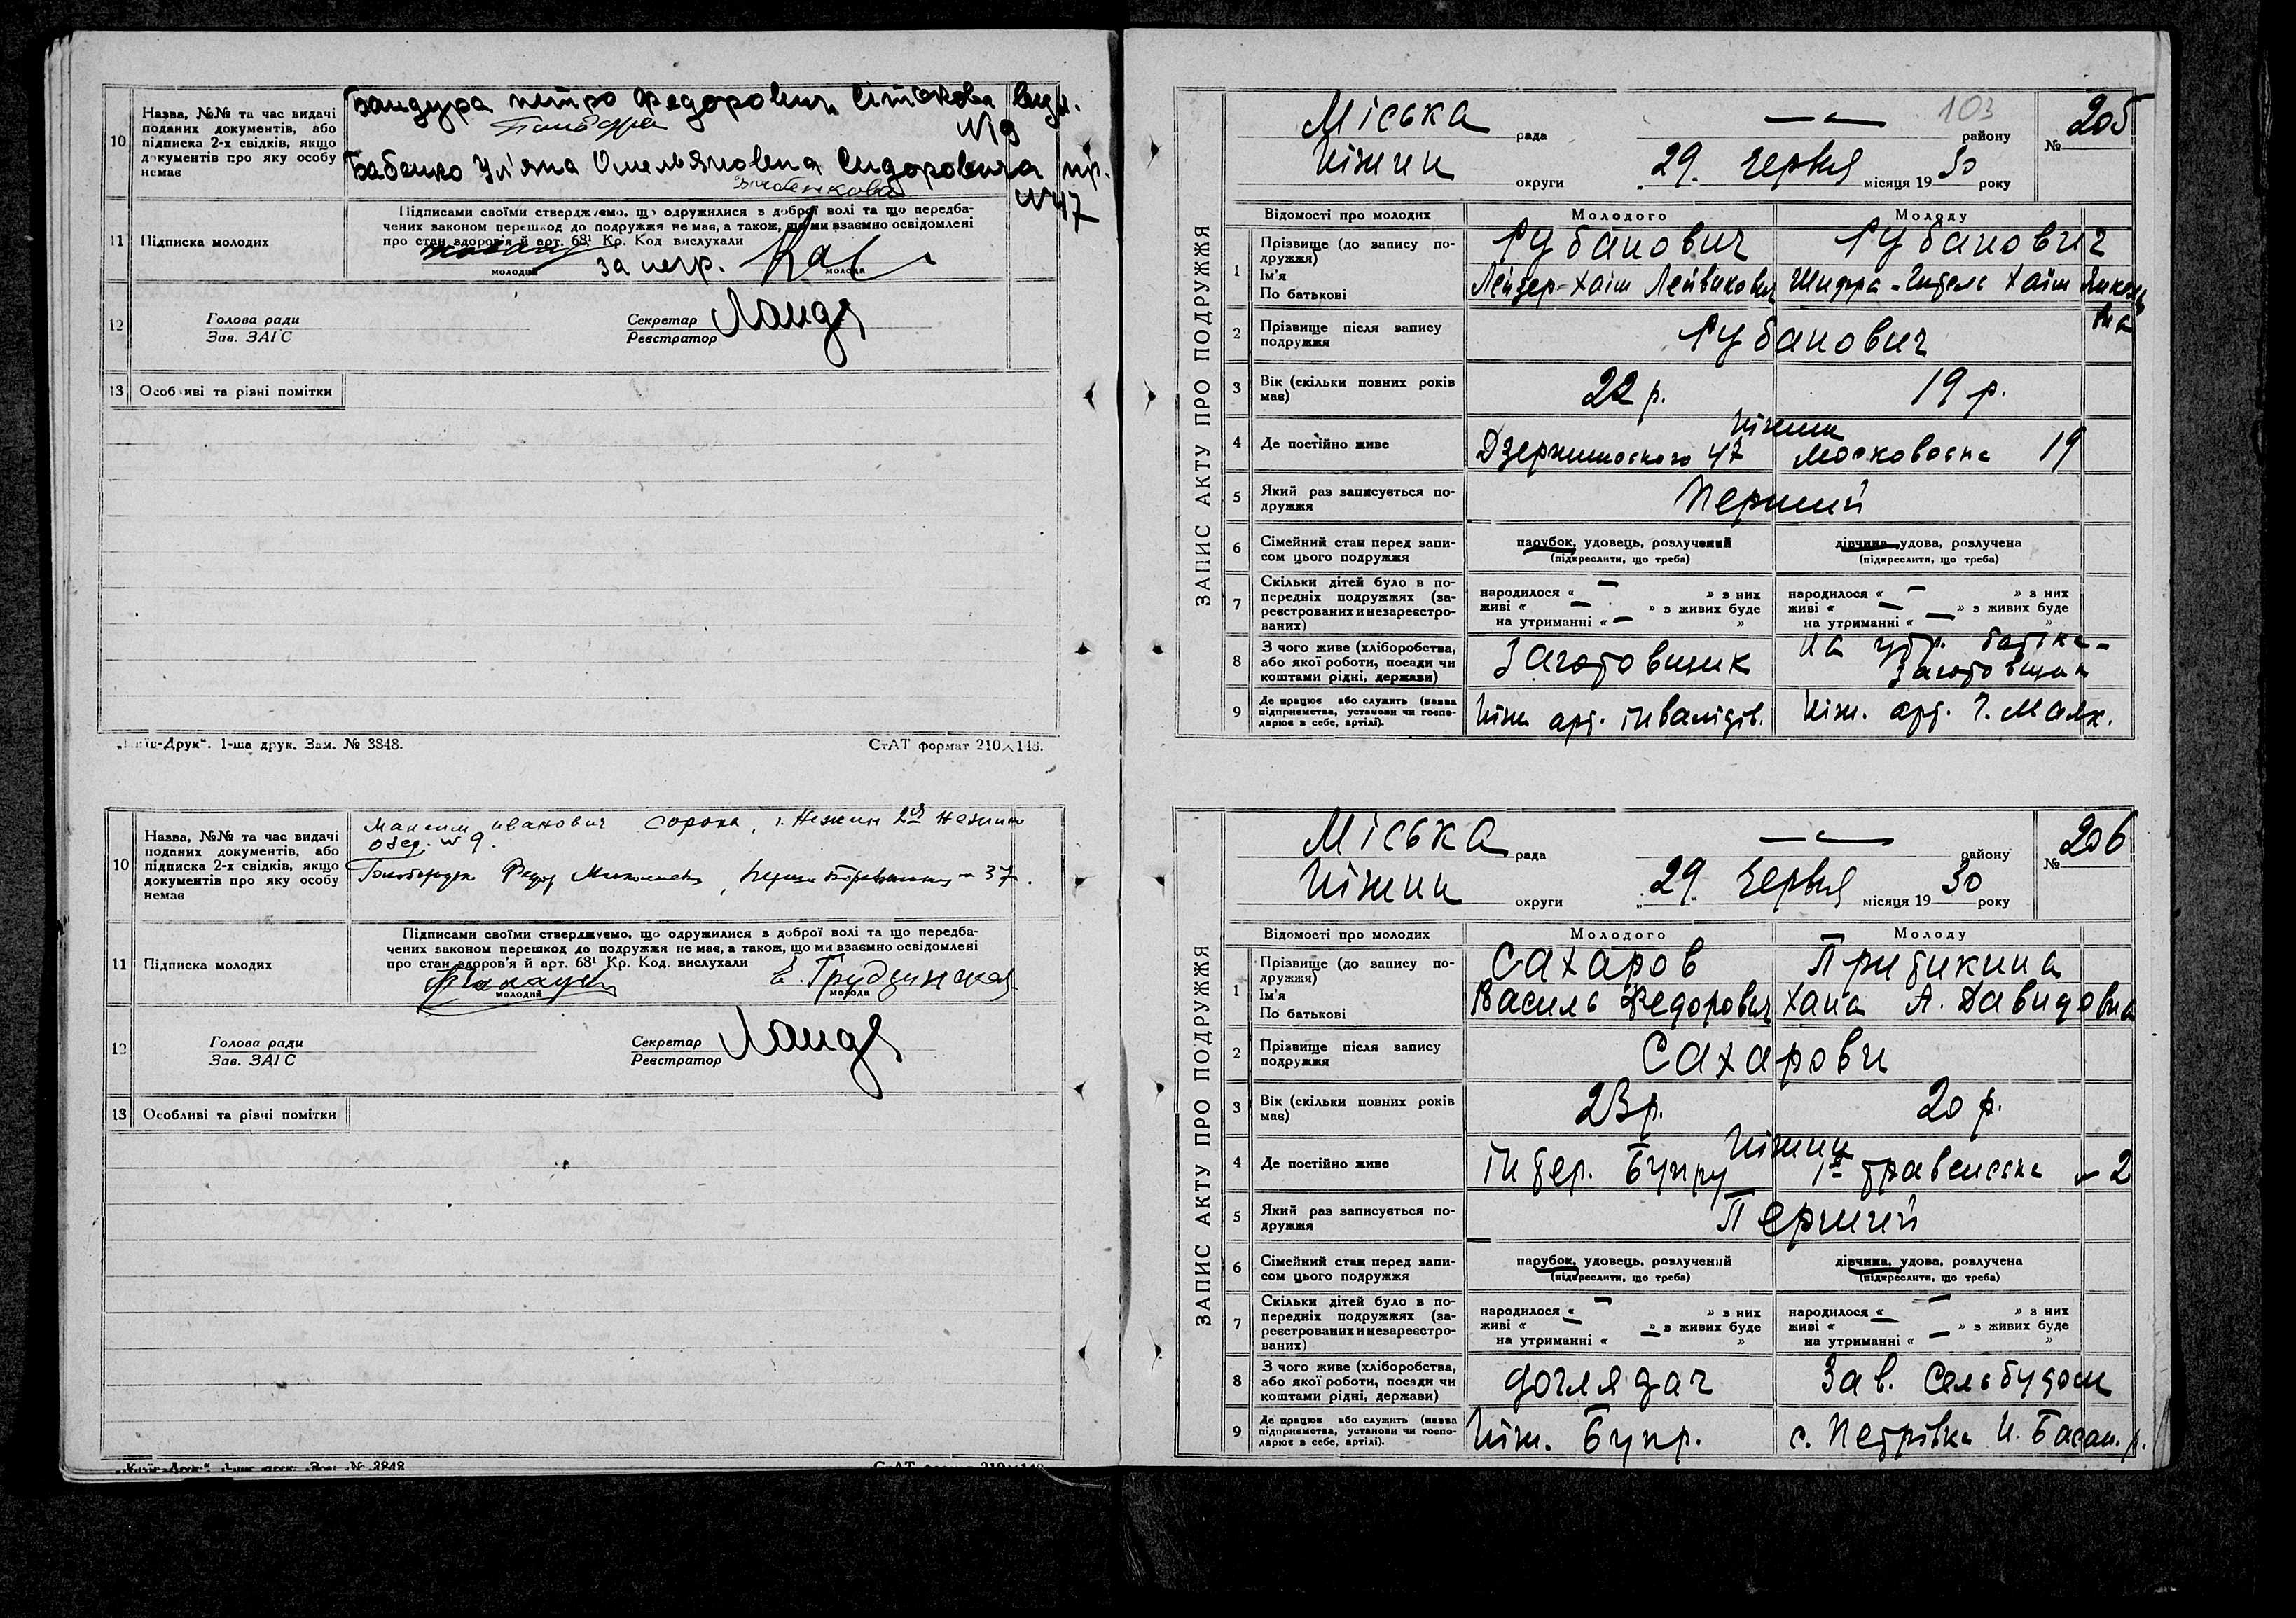 10
Назва, №№ та час видачі
поданих документів, або
підписка 2-х свідків, якщо
документів про яку особу
немає
Бандура Петро Федорович
№ 9
Бабенко Ул'яна Омельяновна Сидоровича пр.
№ 47
11
Підписка молодих
Підписами своїми стверджуємо, що одружилися з доброї волі та що передба-
чених законом перешкод до подружжя не має, а також, що ми взаємно освідомлені
про стан здоров'я й арт. 68¹ Кр. Код вислухали
за негр.
молодий
молода
12
Голова ради
Зав. ЗАГС
Секретар
Реєстратор
13 Особливі та рівні помітки
„Київ-Друк“. 1-ша друк. Зам. № 3848.
СтАТ формат 210×148.
10
Назва, №№ та час видачі
поданих документів, або
підписка 2-х свідків, якщо
документів про яку особу
немає
Максим Иванович Сорока, г. Нежин
№ 9.
Федор 37.
11
Підписка молодих
Підписами своїми стверджуємо, що одружилися з доброї волі та що передба-
чених законом перешкод до подружжя не має, а також, що ми взаємно освідомлені
про стан здоров'я й арт. 68¹ Кр. Код. вислухали
молодий
молода
12
Голова ради
Зав. ЗАГС
Секретар
Реєстратор
13 Особливі та рівні помітки
„Київ-Друк“. 1-ша друк. Зам. № 3848
СтАТ формат 210×148
ЗАПИС АКТУ ПРО ПОДРУЖЖЯ
103
Міська рада району № 205
Ніжин округи „29 червня місяця 1930 року
Відомості про молодих Молодого Молоду
1
Прізвище (до запису по-
дружжя)
Ім'я
По батькові
Рубанович Рубанович
Лейзер-Хаім Лейвикович
2
Прізвище після запису
подружжя
Рубанович
3
Вік (скільки повних років
має)
22 р. 19 р.
4
Де постійно живе
Ніжин
Дзержинського 47 Московська 19
5
Який раз записується по-
дружжя
Перший
6
Сімейний стан перед запи-
сом цього подружжя
парубок, удовець, розлучений
(підкреслити, що треба)
дівчина, удова, розлучена
(підкреслити, що треба)
7
Скільки дітей було в по-
передніх подружжях (за-
реєстрованих и незареєстро-
ваних)
народилося « » з них
живі « » з живих буде
на утриманні « »
народилося « » з них
живі « » з живих буде
на утриманні « »
8
З чого живе (хліборобства,
або якої роботи, посади чи
коштами рідні, держави)
Заготовщик
на утр. батька-
Заготовщик
9
Де працює або служить (назва
підприємства, установи чи госпо-
дарює в себе, артілі).
Ніжн арт. інвалідів. Ніж. арт.
ЗАПИС АКТУ ПРО ПОДРУЖЖЯ
Міська рада району № 206
Ніжин округи „29 червня місяця 1930 року
Відомості про молодих Молодого Молоду
1
Прізвище (до запису по-
дружжя)
Ім'я
По батькові
Сахаров Притикина
Василь Федорович Хана А. Давидовна
2
Прізвище після запису
подружжя
Сахарови
3
Вік (скільки повних років
має)
23 р. 20 р.
4
Де постійно живе
Ніжин
інтер. Бупру 1е травенська - 2
5
Який раз записується по-
дружжя
Перший
6
Сімейний стан перед запи-
сом цього подружжя
парубок, удовець, розлучений
(підкреслити, що треба)
дівчина, удова, розлучена
(підкреслити, що треба)
7
Скільки дітей було в по-
передніх подружжях (за-
реєстрованих и незареєстро-
ваних)
народилося « » з них
живі « » з живих буде
на утриманні « »
народилося « » з них
живі « » з живих буде
на утриманні « »
8
З чого живе (хліборобства,
або якої роботи, посади чи
коштами рідні, держави)
доглядач Зав. Сельбудом
9
Де працює або служить (назва
підприємства, установи чи госпо-
дарює в себе, артілі).
Ніж. Бупр. с. Петрівка Н. Басан. р.